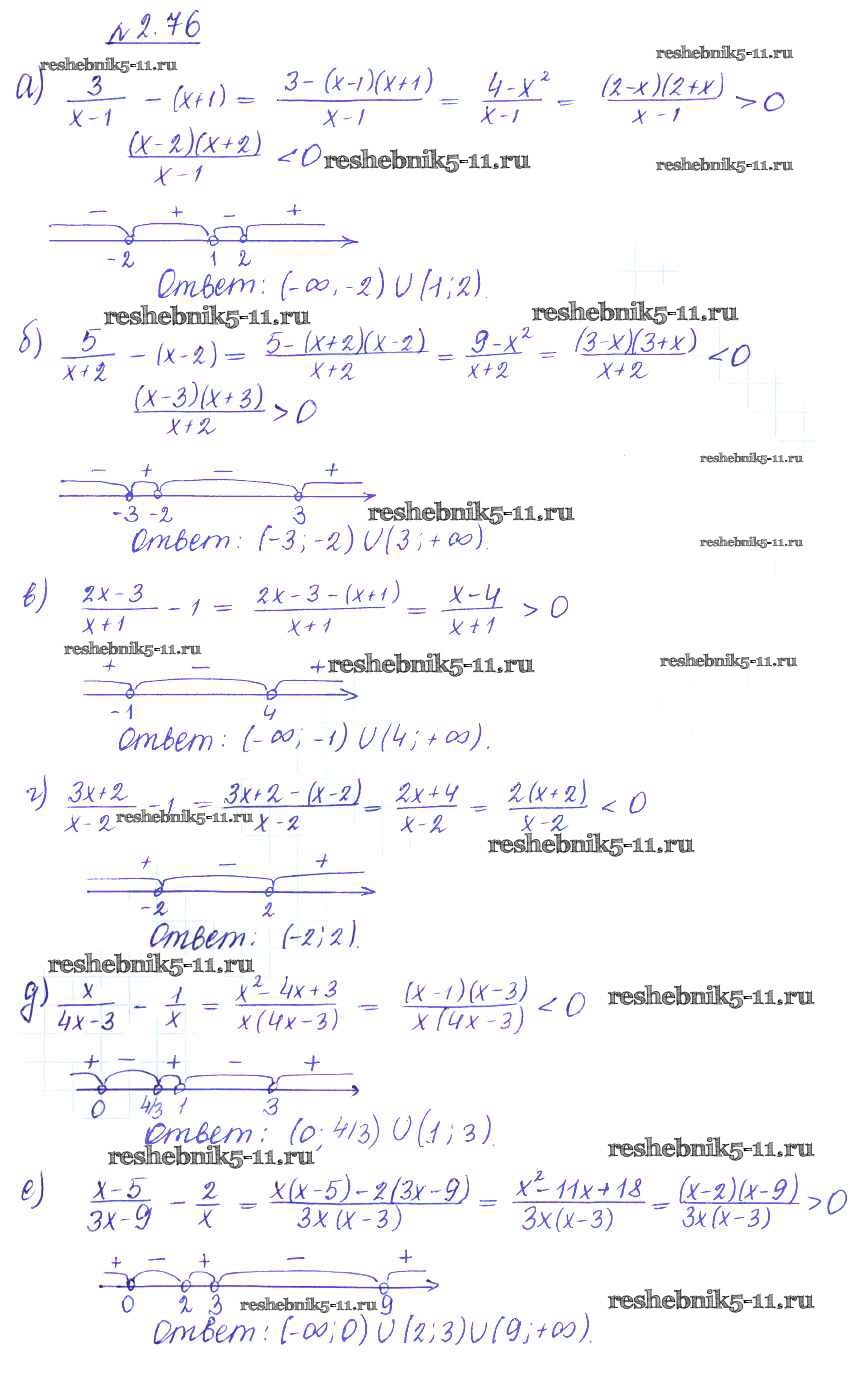 № 2.76
reshebnik5-11.ru
reshebnik5-11.ru
а) 3/(x-1) - (x+1) = (3-(x-1)(x+1))/(x-1) = (4-x²)/(x-1) = ((2-x)(2+x))/(x-1) > 0
((x-2)(x+2))/(x-1) < 0
reshebnik5-11.ru
reshebnik5-11.ru
- + - +
-2 1 2
Ответ: (-∞, -2) ∪ (1; 2).
reshebnik5-11.ru
reshebnik5-11.ru
б) 5/(x+2) - (x-2) = (5-(x+2)(x-2))/(x+2) = (9-x²)/(x+2) = ((3-x)(3+x))/(x+2) < 0
((x-3)(x+3))/(x+2) > 0
reshebnik5-11.ru
- + - +
-3 -2 3
reshebnik5-11.ru
Ответ: (-3; -2) ∪ (3; +∞).
reshebnik5-11.ru
в) (2x-3)/(x+1) - 1 = (2x-3-(x+1))/(x+1) = (x-4)/(x+1) > 0
reshebnik5-11.ru
+ - +
reshebnik5-11.ru
reshebnik5-11.ru
-1 4
Ответ: (-∞; -1) ∪ (4; +∞).
г) (3x+2)/(x-2) - 1 = (3x+2-(x-2))/(x-2) = (2x+4)/(x-2) = (2(x+2))/(x-2) < 0
reshebnik5-11.ru
reshebnik5-11.ru
+ - +
-2 2
Ответ: (-2; 2).
reshebnik5-11.ru
д) x/(4x-3) - 1/x = (x²-4x+3)/(x(4x-3)) = ((x-1)(x-3))/(x(4x-3)) < 0
reshebnik5-11.ru
+ - + - +
0 4/3 1 3
Ответ: (0; 4/3) ∪ (1; 3).
reshebnik5-11.ru
reshebnik5-11.ru
е) (x-5)/(3x-9) - 2/x = (x(x-5)-2(3x-9))/(3x(x-3)) = (x²-11x+18)/(3x(x-3)) = ((x-2)(x-9))/(3x(x-3)) > 0
+ - + - +
0 2 3 9
reshebnik5-11.ru
reshebnik5-11.ru
Ответ: (-∞; 0) ∪ (2; 3) ∪ (9; +∞).